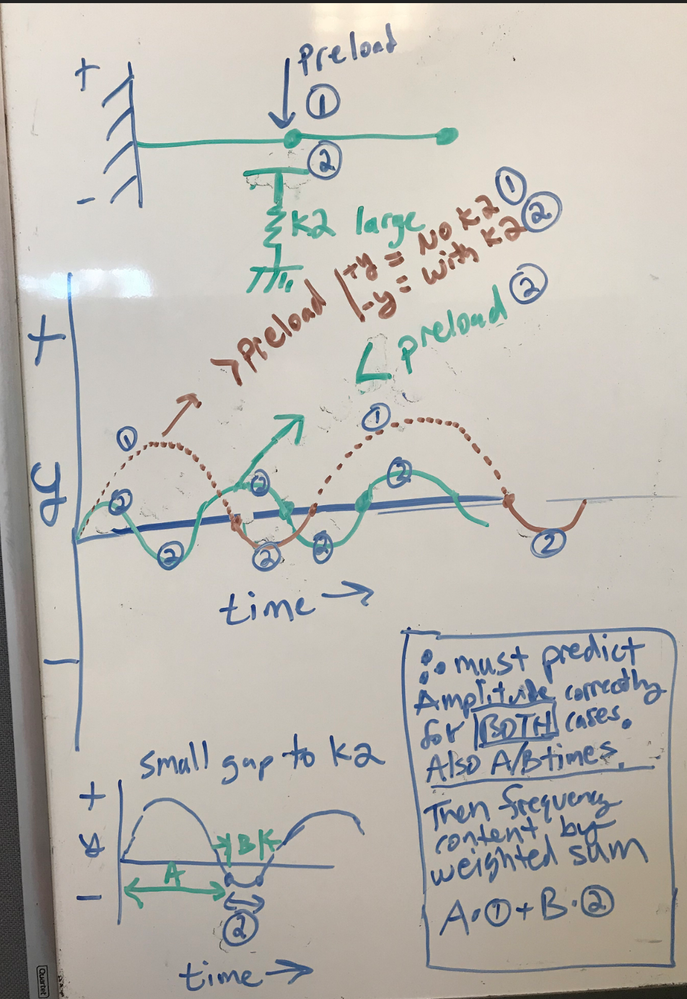 Preload
+
①
②
-
k2 large
>Preload
+y = No k2 ①
-y = with k2 ②
< preload ②
+
y
-
①
②
②
②
②
②
①
②
②
time →
∴ must predict
Amplitude correctly
for BOTH cases.
Also A/B times.
Then frequency
content by
weighted sum
A·①+B·②
Small gap to k2
+
y
-
B
A
②
time →
Quartet